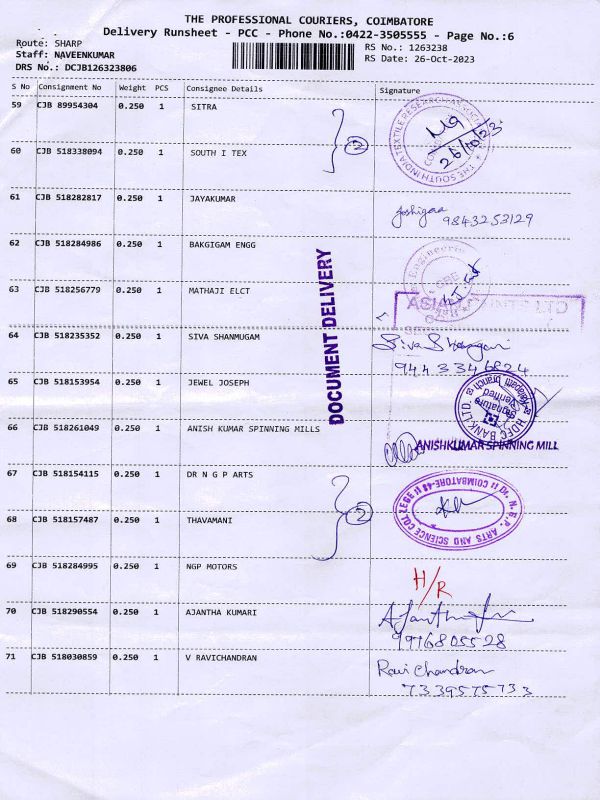 THE PROFESSIONAL COURIERS, COIMBATORE
Delivery Runsheet - PCC - Phone No.:0422-3505555 - Page No.:6
Route: SHARP
Staff: NAVEENKUMAR
DRS No.: DCJB126323806
RS No.: 1263238
RS Date: 26-Oct-2023
S No Consignment No Weight PCS Consignee Details Signature
59 CJB 89954304 0.250 1 SITRA
2
26/10/23
60 CJB 518338094 0.250 1 SOUTH I TEX
61 CJB 518282817 0.250 1 JAYAKUMAR
9843253129
62 CJB 518284986 0.250 1 BAKGIGAM ENGG
63 CJB 518256779 0.250 1 MATHAJI ELCT
DOCUMENT DELIVERY
64 CJB 518235352 0.250 1 SIVA SHANMUGAM
9443346824
65 CJB 518153954 0.250 1 JEWEL JOSEPH
HDFC BANK LTD.
Signature
Verified
66 CJB 518261049 0.250 1 ANISH KUMAR SPINNING MILLS
ANISHKUMAR SPINNING MILL
67 CJB 518154115 0.250 1 DR N G P ARTS
2
Dr. N.G.P. ARTS AND SCIENCE COLLEGE
COIMBATORE-48
68 CJB 518157487 0.250 1 THAVAMANI
69 CJB 518284995 0.250 1 NGP MOTORS
H/R
70 CJB 518290554 0.250 1 AJANTHA KUMARI
9976805528
71 CJB 518030859 0.250 1 V RAVICHANDRAN
Ravi Chandran
7339575733